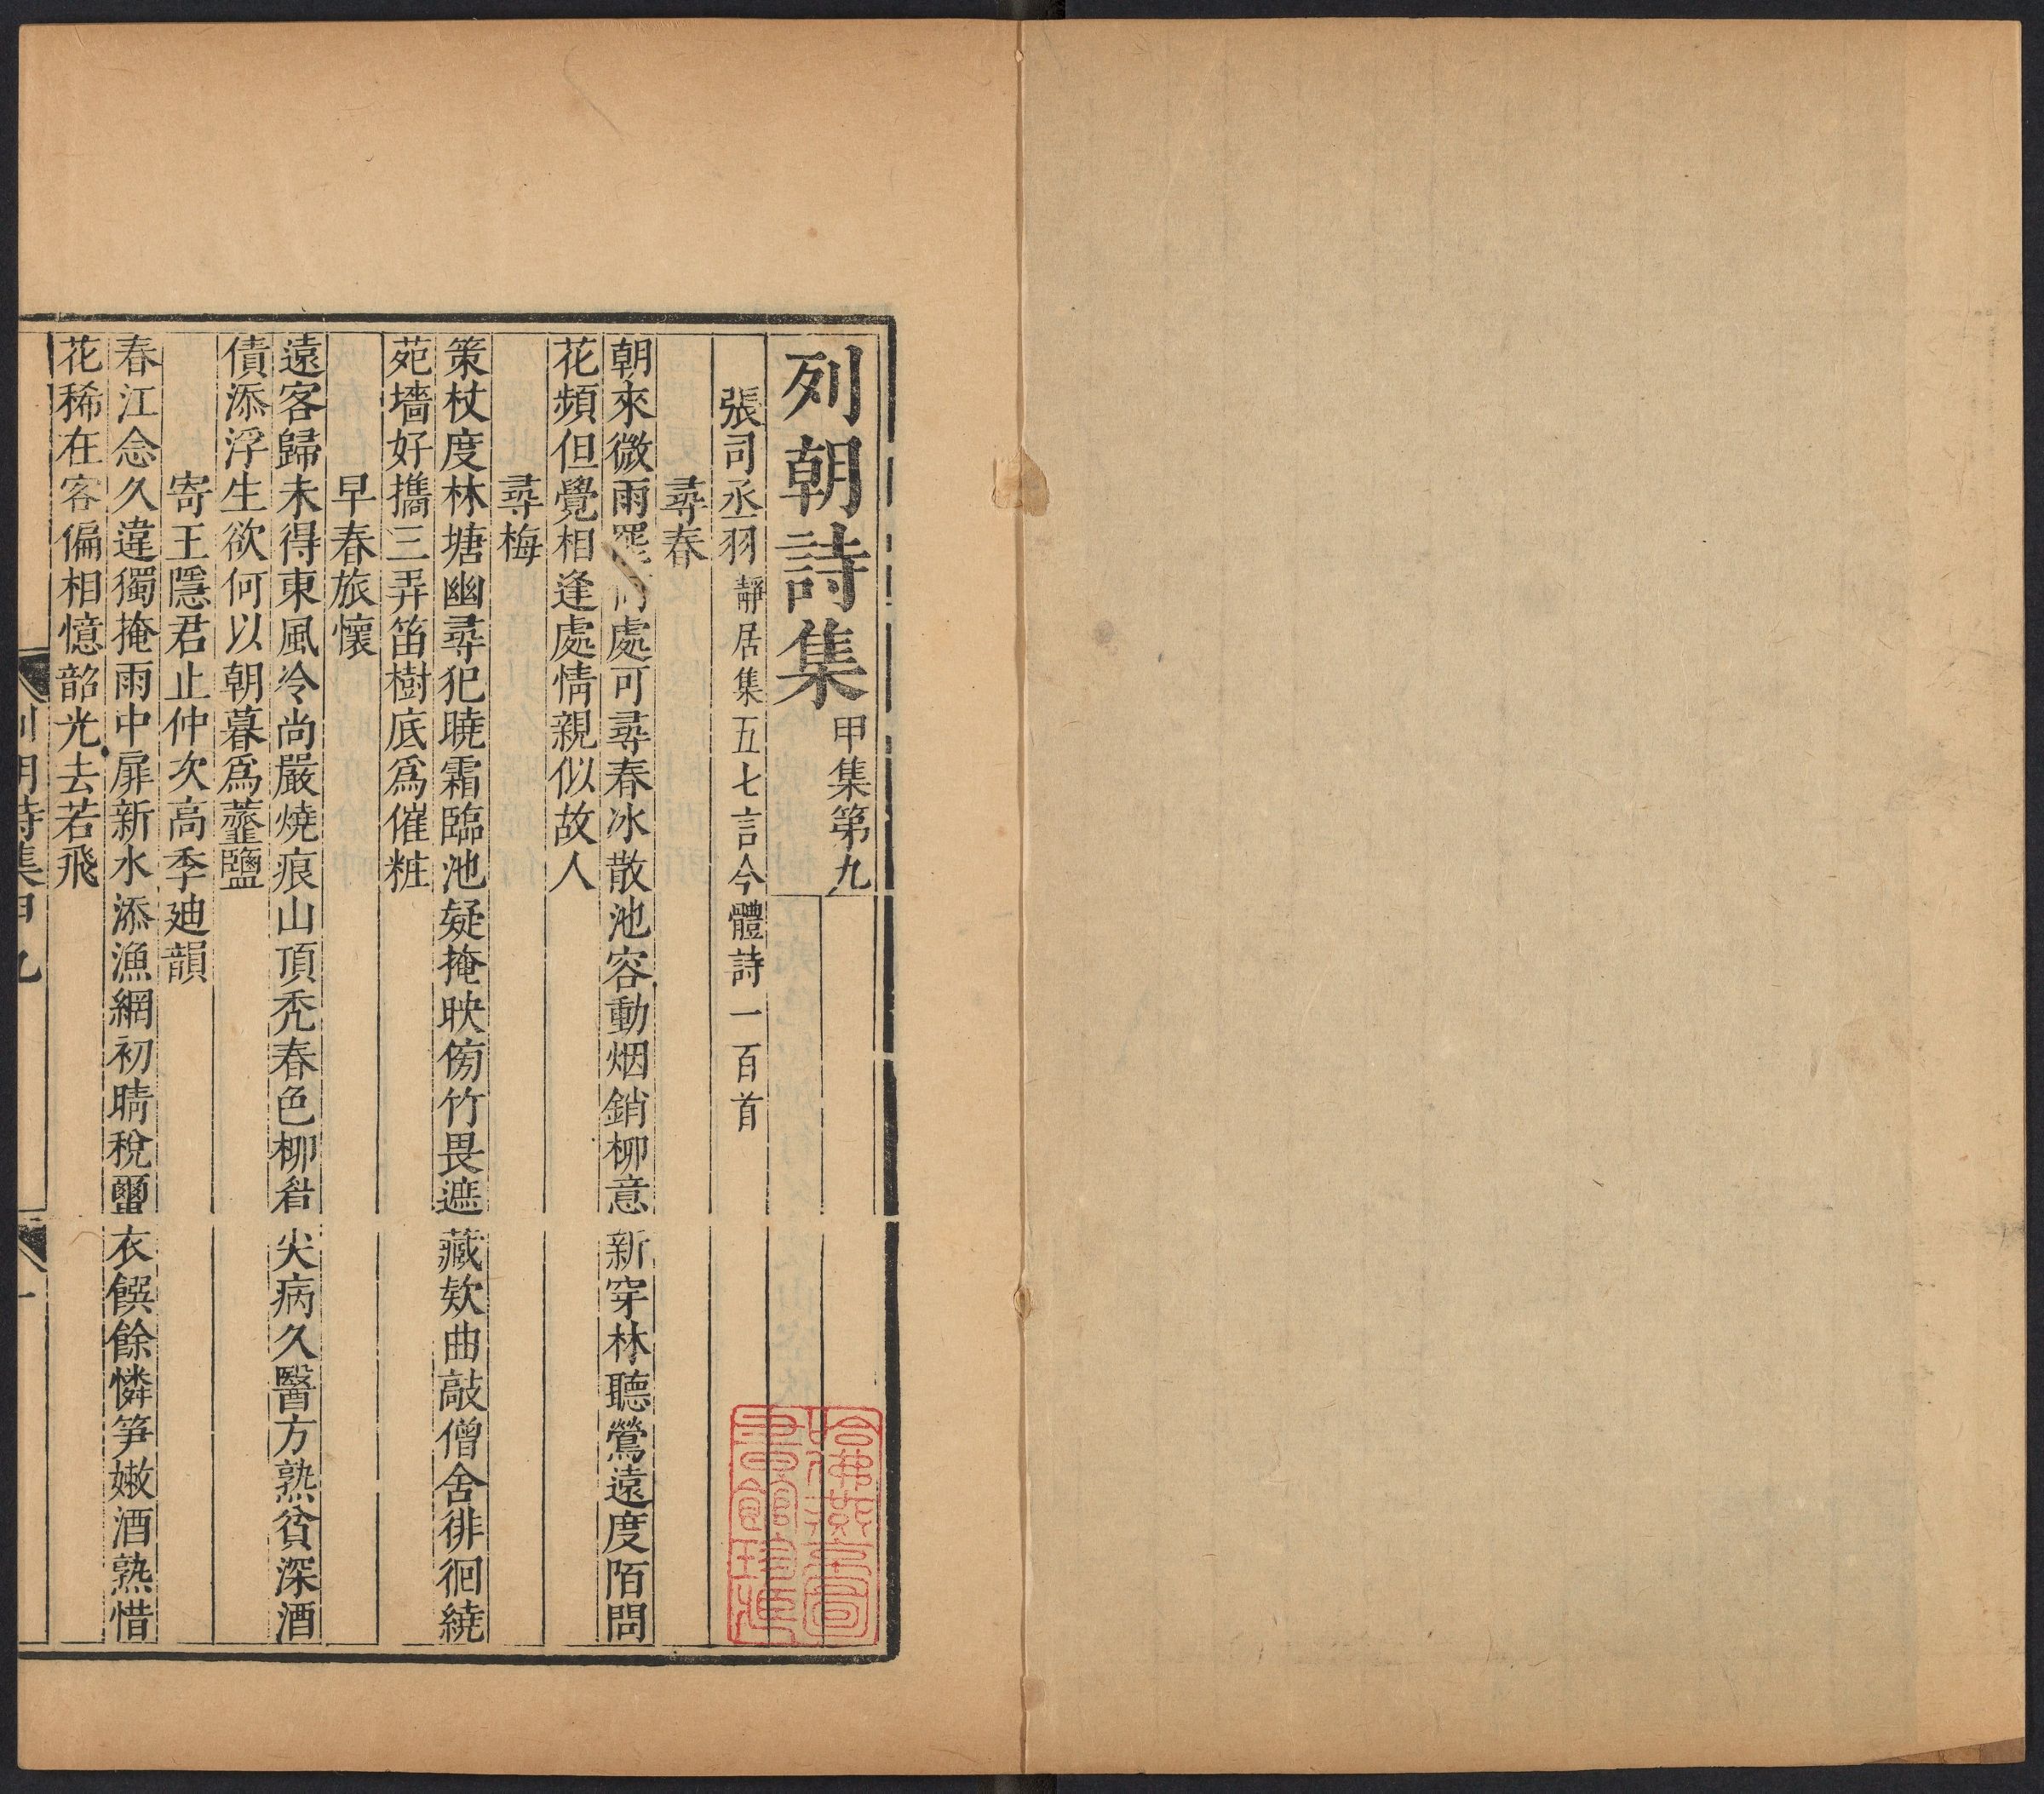 列朝詩集甲集第九
張司丞羽靜居集五七言今體詩一百首
尋春
朝來微雨罷何處可尋春冰散池容動烟銷柳意新穿林聽鶯遠度陌問
花頻但覺相逢處情親似故人
尋梅
策杖度林塘幽尋犯曉霜臨池疑掩映傍竹畏遮藏欵曲敲僧舍徘徊繞
苑墻好攜三弄笛樹底爲催粧
早春旅懷
遠客歸未得東風冷尚嚴燒痕山頂禿春色柳眉尖病久醫方熟貧深酒
債添浮生欲何以朝暮爲虀鹽
寄王隱君止仲次高季廸韻
春江念久違獨掩雨中扉新水添漁網初晴稅蠶衣饌餘憐笋嫩酒熟惜
花稀在客偏相憶韶光去若飛
列朝詩集甲九
一
哈佛燕京圖
書館珍藏